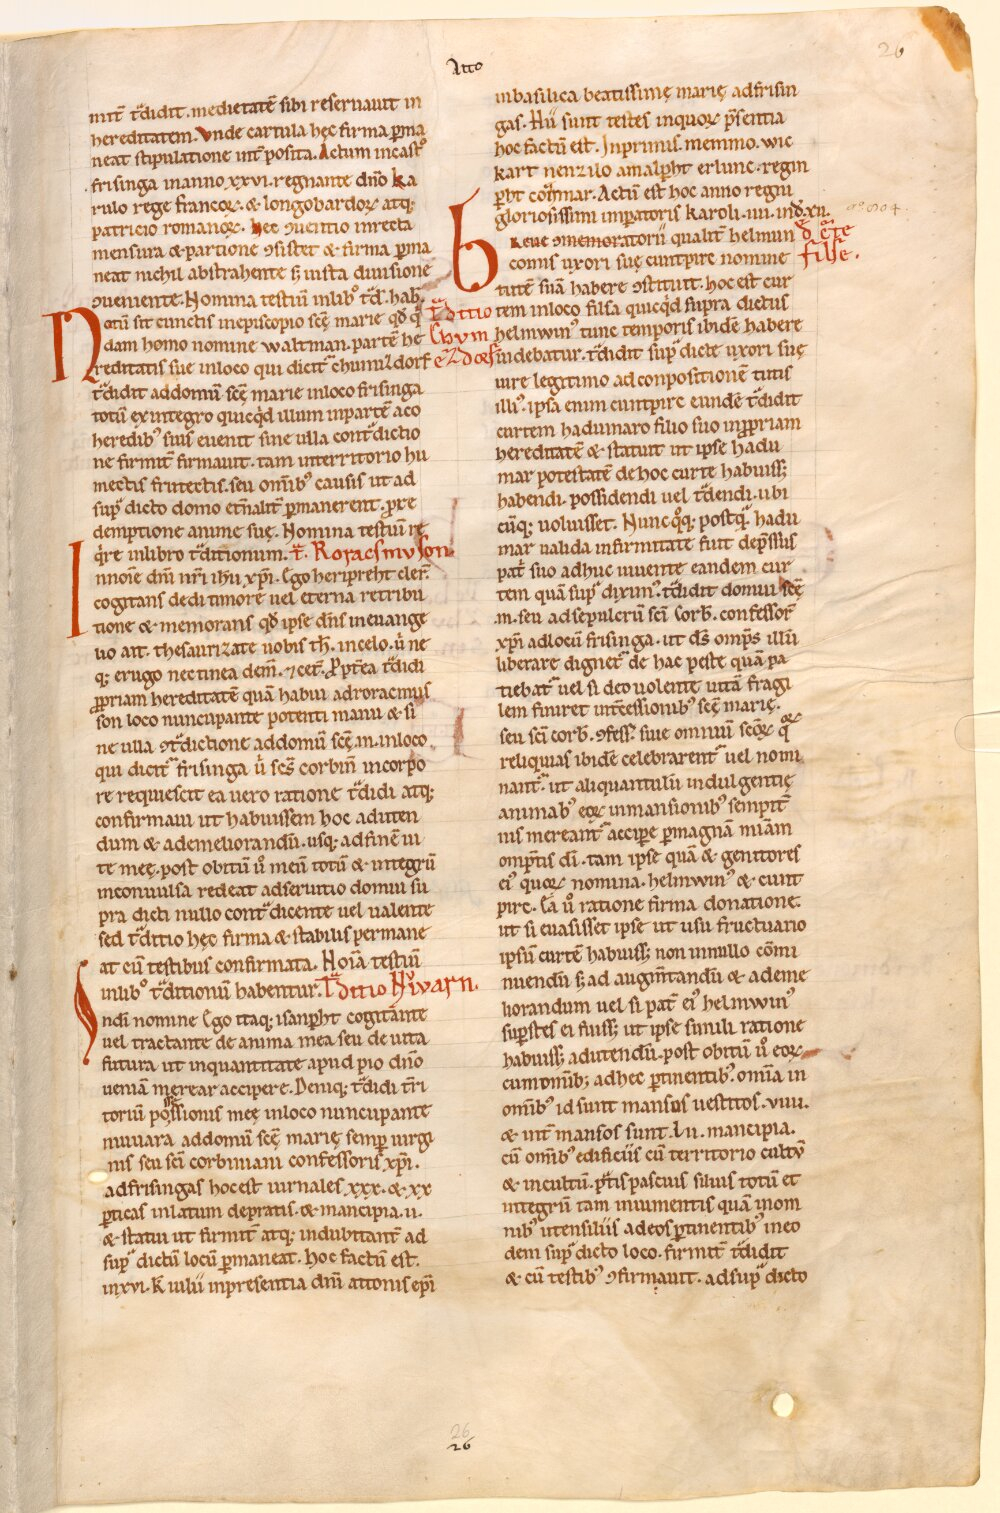 Atto
26
mit̄ t̄didit. medietatē sibi reseruauit in
hereditatem. Vnde cartula hęc firma ꝑma
neat stipulatione int̄ posita. Actum in cast̄o
frisinga in anno xxvi. regnante dn̄o ka
rulo rege francoꝝ. & longobardoꝝ atq;
patricio romanoꝝ. Hec ꝯuentio in recta
mensura & partione ꝯsistet & firma ꝑma
neat nichil abstrahente s; iusta diuisione
ꝯueniente. Nomina testiū in lib̄o t̄d. hab̄.
Notū sit cunctis in episcopio scę̄ marie qd̄ q̄
dam homo nomine waltman. partē he
reditatis sue in loco qui dicit̄ chumizdorf
t̄didit ad domū scę̄ marie in loco frisinga
totū ex integro quicq̄d illum in partē a co
heredib; suis euenit sine ulla cont̄dictio
ne firmit̄ firmauit. tam in territorio hu
mectis frutectis. seu om̄ib; causis ut ad
sup̄ dicto domo et̄nalit̄ ꝑmanerent. ꝓ re
demptione anime suę. Nomina testiū re
q̄re in libro t̄ditionum. T̄. Roraesmvson.
In noīe dn̄i nr̄i ih̄u xp̄i. Ego heripreht cler̄.
cogitans de di timore uel eterna retribu
tione & memorans qd̄ ipse dn̄s in euange
lio ait. thesaurizate uobis th̄. in celo. ū ne
q; erugo nec tinea dem̄. & cet̄. Ꝓpt̄ea t̄didi
ꝓpriam hereditatē quā habui ad roraesmus
son loco nuncupante potenti manu & si
ne ulla ꝯt̄dictione ad domū scę̄. m. in loco
qui dicit̄ frisinga ū scs̄ corbin̄ in corpo
re requiescit ea uero ratione t̄didi atq;
confirmaui ut habuissem hoc ad uten
dum & ad emeliorandū. usq; ad finē ui
te meę. post obitū ū meū totū & integrū
inconuulsa redeat ad seruitio domui su
pra dicti nullo cont̄dicente uel ualente
sed t̄ditio hęc firma & stabilis permane
at cū testibus confirmata. Noīa testiū
in lib̄o t̄ditionū habentur. T̄ditio Nivarn.
In di nomine Ego itaq; isanꝑht cogitante
uel tractante de anima mea seu de uita
futura ut in quantitate apud pio dn̄o
ueniā merear accipere. Deniq; t̄didi t̄ri
toriū possessionis meę in loco nuncupante
niuuara ad domū scę̄ marię semꝑ uirgi
nis seu sc̄i corbiniani confessoris xp̄i.
ad frisingas hoc est iurnales xxx. & xx
ꝑticas in latum de pratis. & mancipia. ii.
& statui ut firmit̄ atq; indubitant̄ ad
sup̄ dictū locū ꝑmaneat. Hoc factū est.
in xvi. K. iulii in presentia dn̄i attonis ep̄i
in basilica beatissimę marię ad frisin
gas. Hii sunt testes in quoꝝ p̄sentia
hoc factū est. Inprimis. memmo. wic
kart nenzilo amalꝑht erlunc. regin
ꝑht cōhmar. Actū est hoc anno regni
gloriosissimi inꝑatoris karoli. iiii. ind̄. xii.
ao 804.
Breue ꝯmemoratorii qualit̄ helmuni
comis uxori suę cuntpirc nomine
tutē suā habere ꝯstituit. hoc est cur
tem in loco filsa quicq̄d supra dictus
helmwin; tunc temporis ibidē habere
uidebatur. t̄didit sup̄ dicte uxori suę
iure legitimo ad conpositionē tutis
illi;. ipsa enim cuntpirc eundē t̄didit
curtem hadumaro filio suo in ꝓpriam
hereditatē & statuit ut ipse hadu
mar potestatē de hoc curte habuiss;
habendi. possidendi uel t̄dendi. ubi
cūq; uoluisset. Nunc q̊q; postq̄ hadu
mar ualida infirmitate fuit dep̄ssus
pat̄ suo adhuc uiuente eandem cur
tem quā sup̄ dixim;. t̄didit domui scę̄
.m. seu ad sepulcrū sc̄i Corb̄. confessor̄
xp̄i ad locū frisinga. ut ds̄ omp̄s illū
liberare dignet̄ de hac peste quā pa
tiebat̄ uel si deo uolente uitā fragi
lem finiret int̄cessionib; scę̄ marię.
seu sc̄i corb̄. ꝯfess̄. siue omniū sc̄oꝝ q̄ꝝ
reliquias ibidē celebrarent̄ uel nomi
nant̄. ut aliquantulū indulgentię
animab; eoꝝ in mansionib; sempit̄
nis mereant̄ accipe ꝑ magnā mīam
omp̄tis di. tam ipse quā & genitores
ei; quoꝝ nomina. helmwin; & cunt
pirc. Ea ū ratione firma donatione.
ut si euasisset ipse ut usu fructuario
ipsū curtē habuiss; non in nullo cōmi
nuendū s; ad augm̄tandū & ad eme
liorandum uel si pat̄ ei; helmwin;
suꝑstes ei fuiss; ut ipse simili ratione
habuiss; ad utendū. post obitū ū eoꝝ
cum omīb; ad hec ꝑtinentib;. omīa in
om̄ib; id sunt mansos uestitos. viii.
& int̄ mansos sunt. lii. mancipia.
cū om̄ib; edificiis cū territorio cultū
& incultū. p̄tis pascuis siluis totū et
integrū tam in iumentis quā in om
nib; utensiliis ad eos ꝑtinentib; in eo
dem sup̄ dicto loco. firmit̄ t̄didit
& cū testib; ꝯfirmauit. ad sup̄ dicto
T̄ditio
Chvm
ezdorf
d̄ c̄te
filse.
26
26